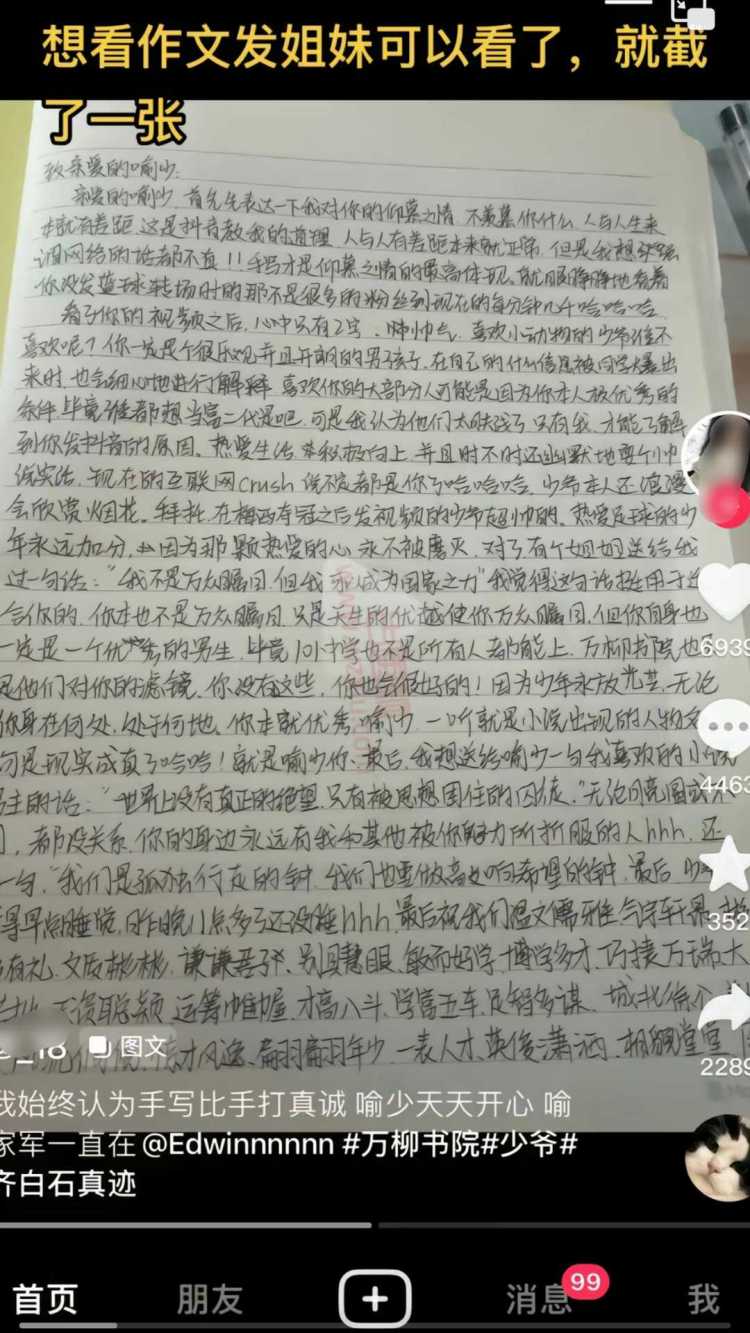 想看作文发姐妹可以看了，就截
了一张
致亲爱的喻少:
亲爱的喻少,首先先表达一下我对你的仰慕之情,不羡慕你什么,人与人生来
本就有差距,这是抖音教我的道理,人与人有差距本来就正常,但是我想
调网络的话都不真!!手写才是仰慕之情的最高体现。就 静静地看着
你没发篮球转场时的那不是很多的粉丝到现在的每分钟几千哈哈哈
看了你的视频之后,心中只有2字,帅 帅气,喜欢小动物的少爷谁不
喜欢呢?你一定是个很乐观并且开朗的男孩子,在自己的什么信息被同学大量出
来时,也会细心地进行解释,喜欢你的大部分人可能是因为你本人极优秀的
条件,毕竟谁都想当富二代是吧,可是我认为他们太肤浅了,只有我,才能了解
到你发抖音的原因。热爱生活,积极向上,并且时不时还幽默地耍个小巾
说实话,现在的互联网crush说不定都是你了哈哈哈,少爷本人还浪漫
会欣赏烟花。拜托,在梅西夺冠之后发视频的少爷超帅的。热爱足球的少
年永远加分,因为那颗热爱的心永不被磨灭,对了有个姐姐送给我
过一句话:“我不是万众瞩目,但我 成为国家之力”我觉得这句话挺用于
合你的,你本也不是万众瞩目,只是天生的优越使你万众瞩目,但你自身也
一定是一个优秀的男生,毕竟101中学也不是所有人都能上,万柳书院也
是他们对你的滤镜,你没有这些,你也会很好的!因为少年永放光芒,无论
你身在何处,处于何地,你本就优秀,喻少,一听就是小说出现的人物文
可是现实成真了哈哈!就是喻少你、最后,我想送给喻少一句我喜欢的小说
男主的话:“世界上没有真正的绝望,只有被思想困住的囚徒。”无论
,都没关系,你的身边永远有我和其他被你魅力所折服的人hhh,还
一句,“我们是孤独行走的钟,我们也要做高处响希望的钟,最后,少
得早点睡觉,昨晚11点多了还没睡hhh,最后祝我们温文儒雅,气宇轩昂,
有礼,文质彬彬,谦谦君子,别具慧眼,敏而好学,博学多才,巧捷万端,大
天资聪颖,运筹帷幄,才高八斗,学富五车,足智多谋,城北徐公,
风流倜傥, 才风逸,翩翩年少,一表人才,英俊潇洒,相貌堂堂,
图文
6939
4463
352
2289
我始终认为手写比手打真诚 喻少天天开心 喻
家军一直在@Edwinnnnnn #万柳书院#少爷#
齐白石真迹
首页
朋友
消息
99
我